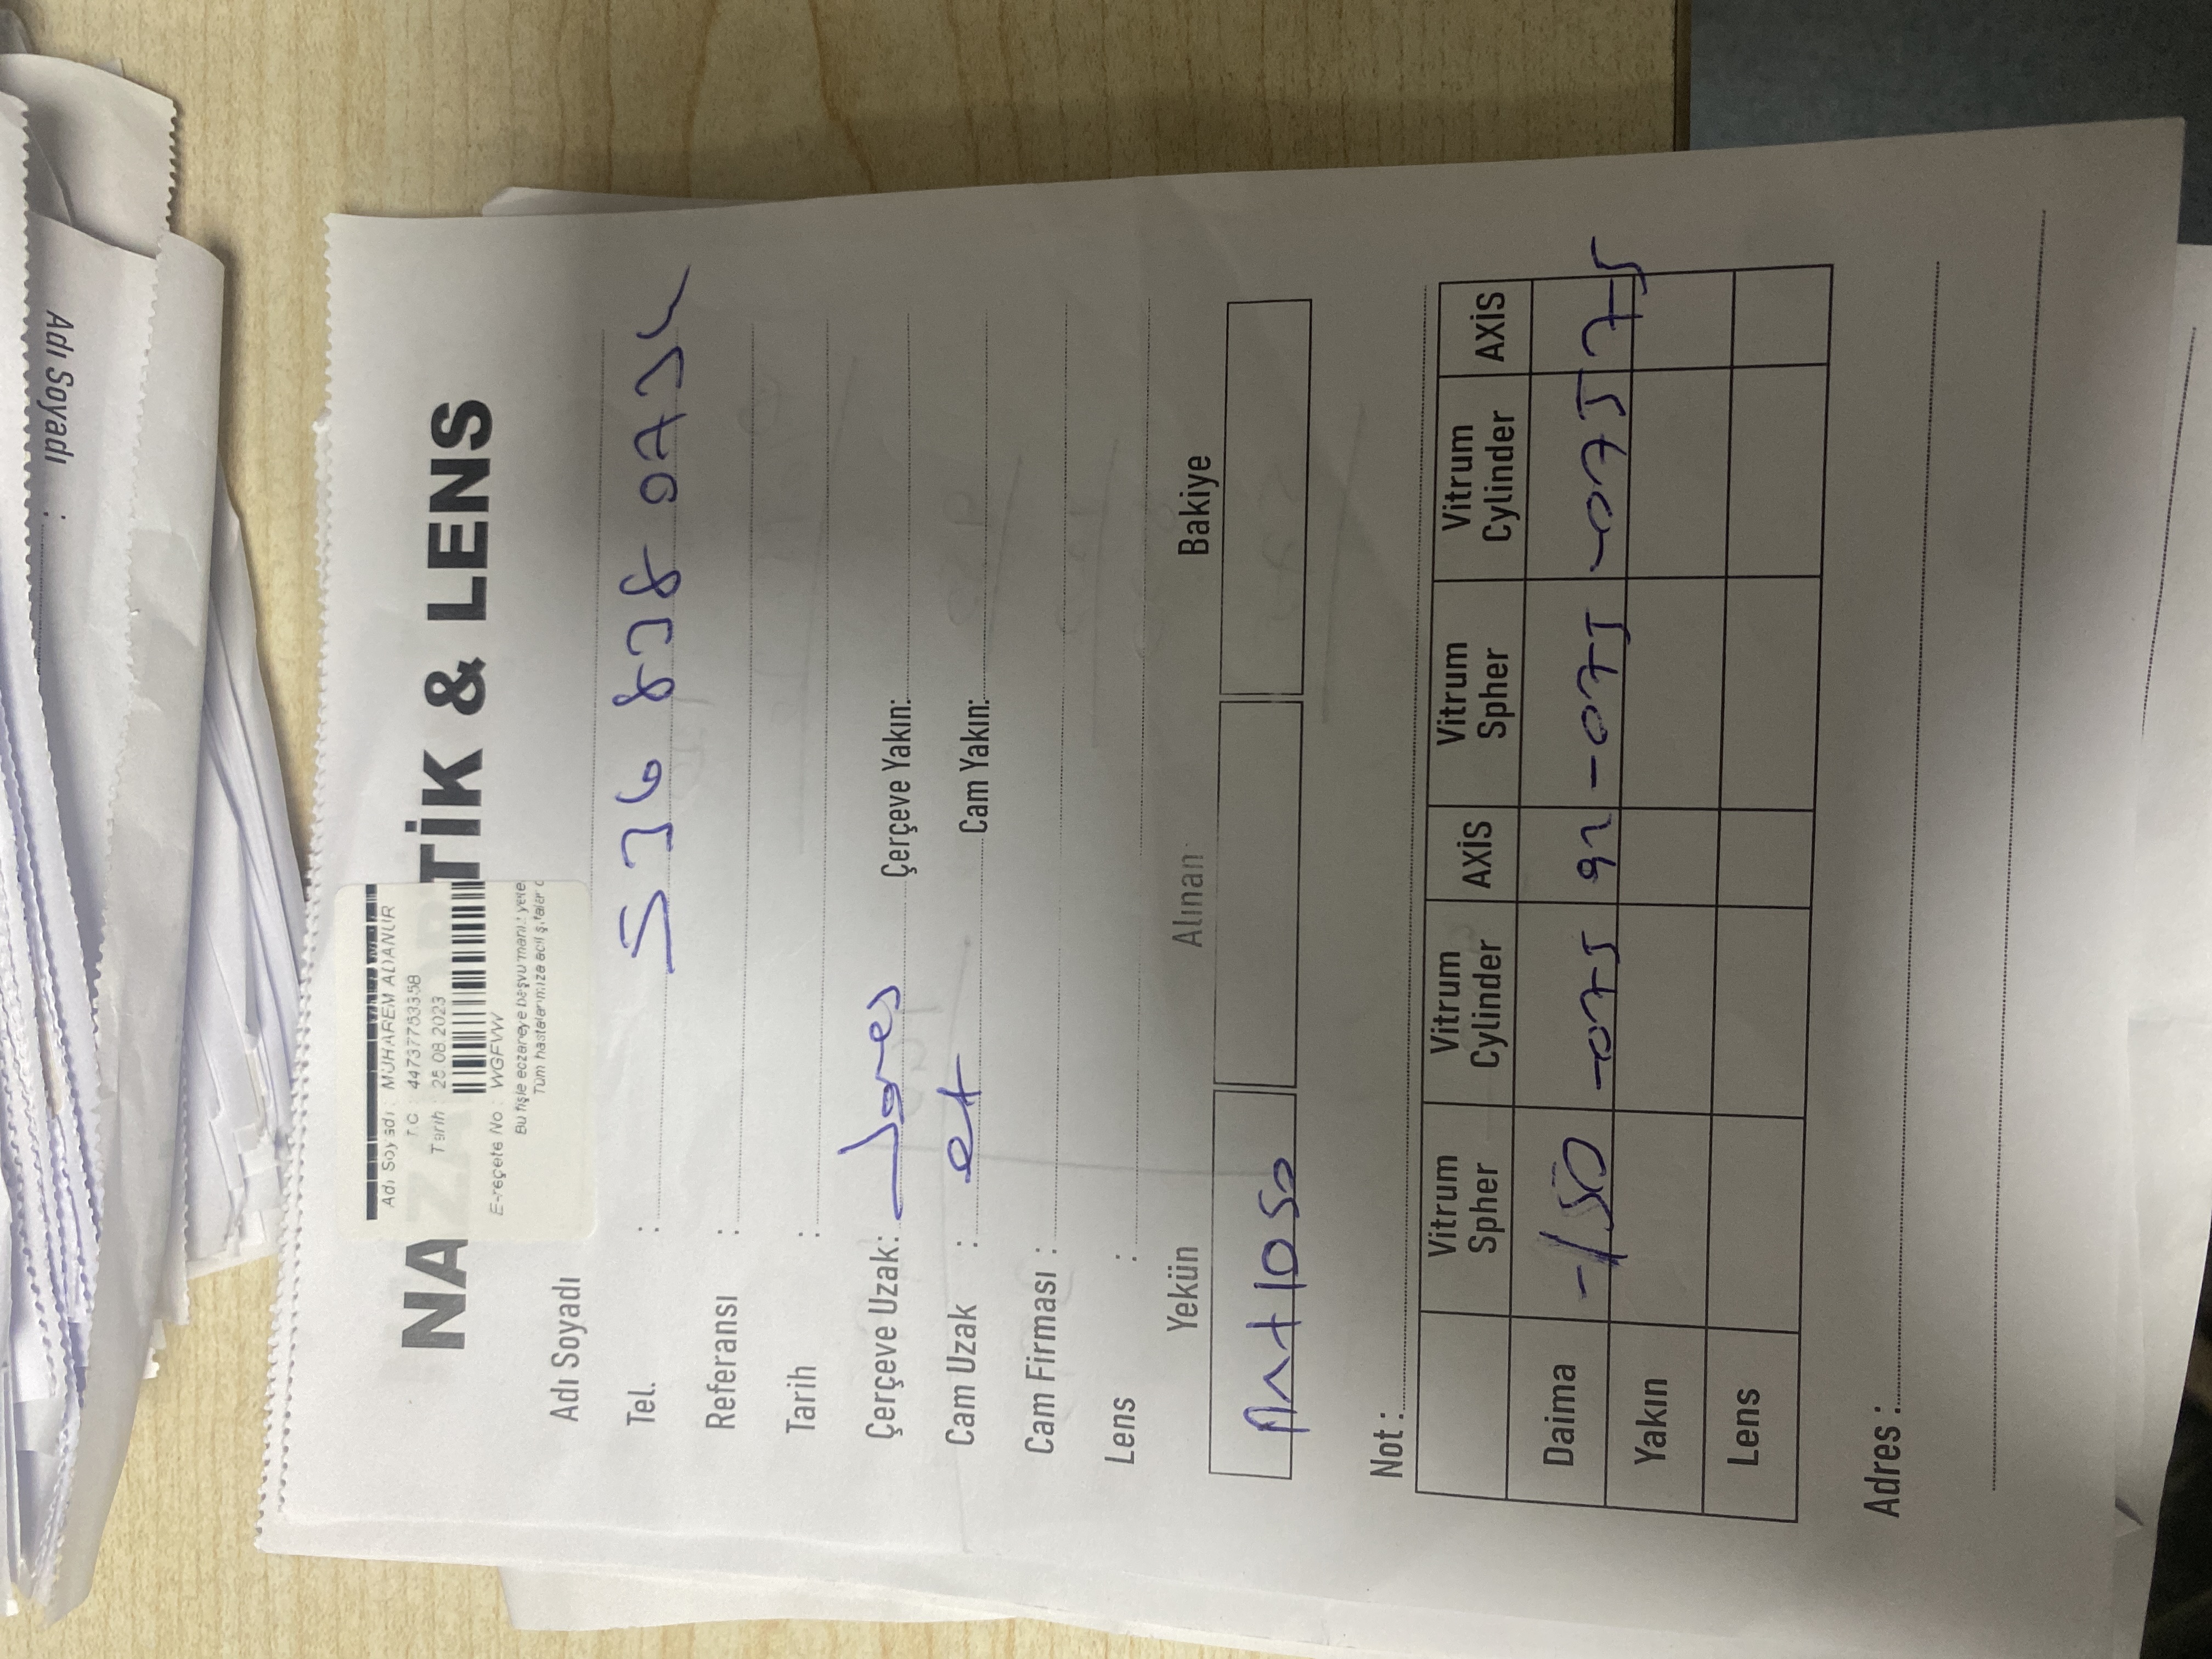 Adı Soyadı :
Adı Soyadı : MUHAREM ADANUR
T.C : 44737753358
Tarih : 25.08.2023
NAZAR OPTİK & LENS
E-reçete No : WGFVW
Bu fişle eczaneye başvurmanız yete
Tüm hastalarımıza acil şifalar d
Adı Soyadı
Tel. : 536 838 0734
Referansı :
Tarih :
Çerçeve Uzak: Çerçeve Yakın:
Cam Uzak : et Cam Yakın:
Cam Firması :
Lens :
Yekün Alınan Bakiye
Ant 1050
Not :
Vitrum Spher Vitrum Cylinder AXİS Vitrum Spher Vitrum Cylinder AXİS
Daima -150 -075 92 -075 -075 75
Yakın
Lens
Adres :